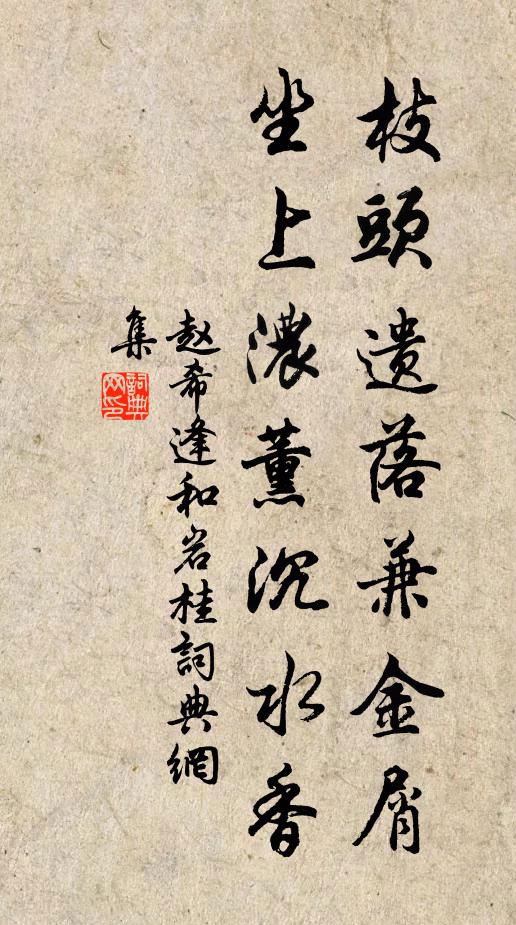 枝頭遺落兼金屑
坐上濃薰沉水香
赵希逢和岩桂詞典網
集
詞典
网印